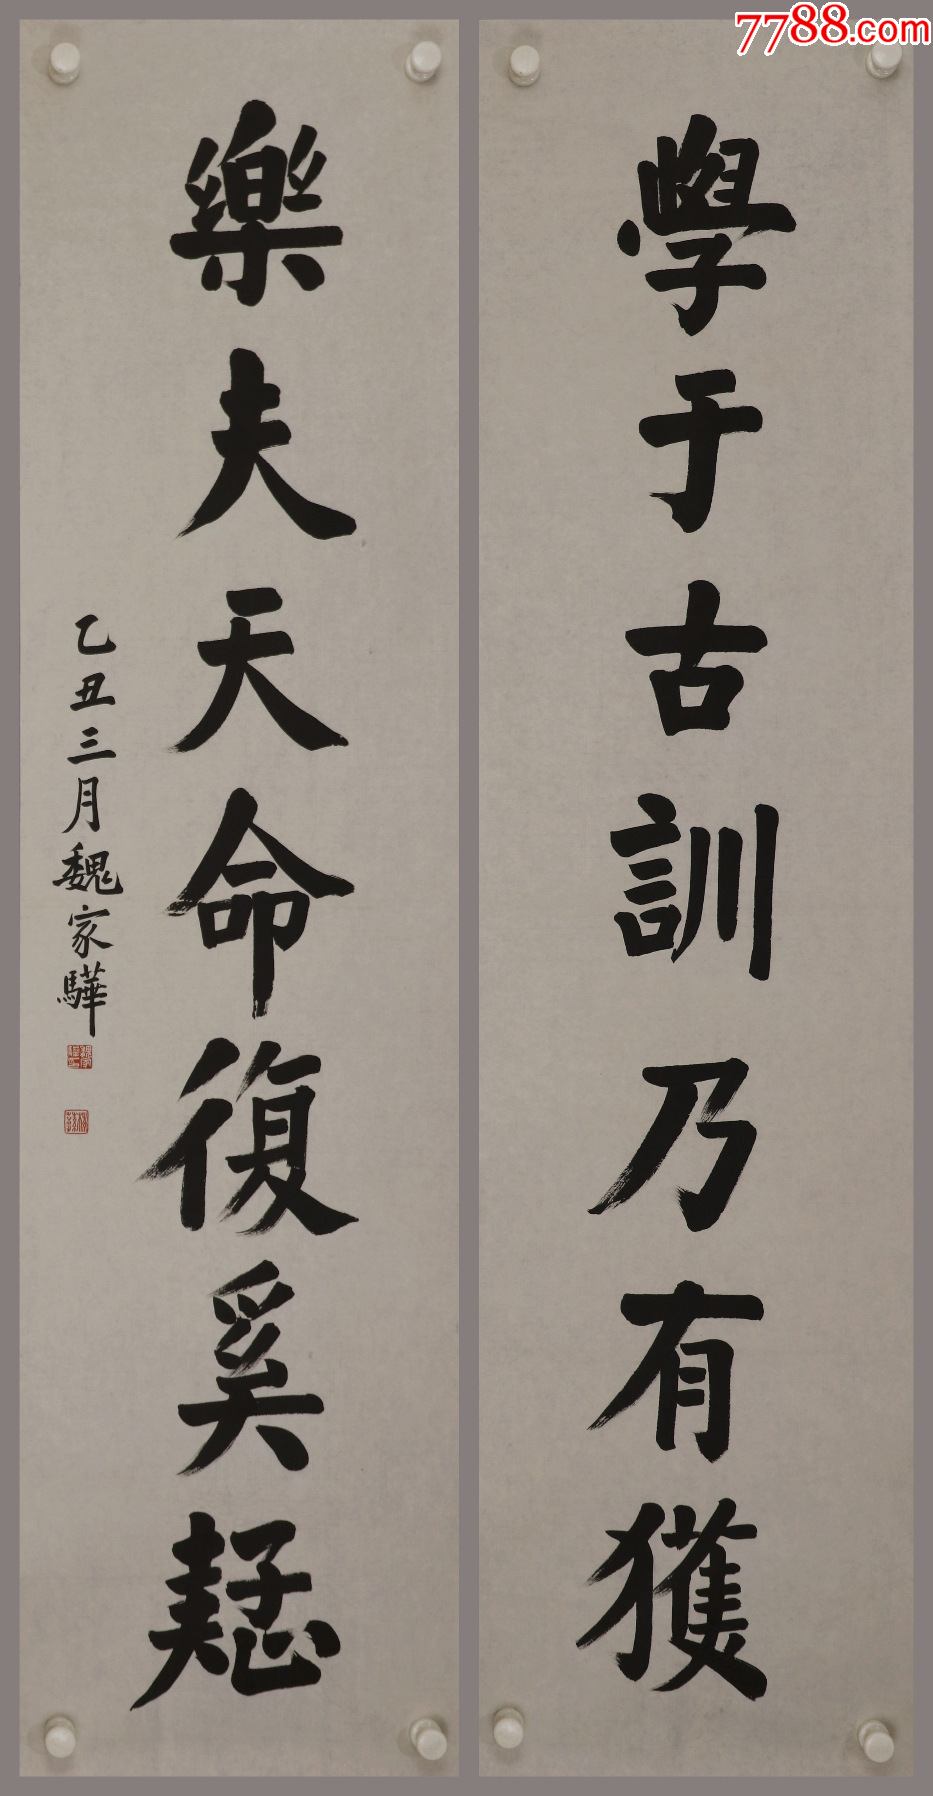 7788.com
學于古訓乃有獲
樂夫天命復奚
乙丑三月魏家驊